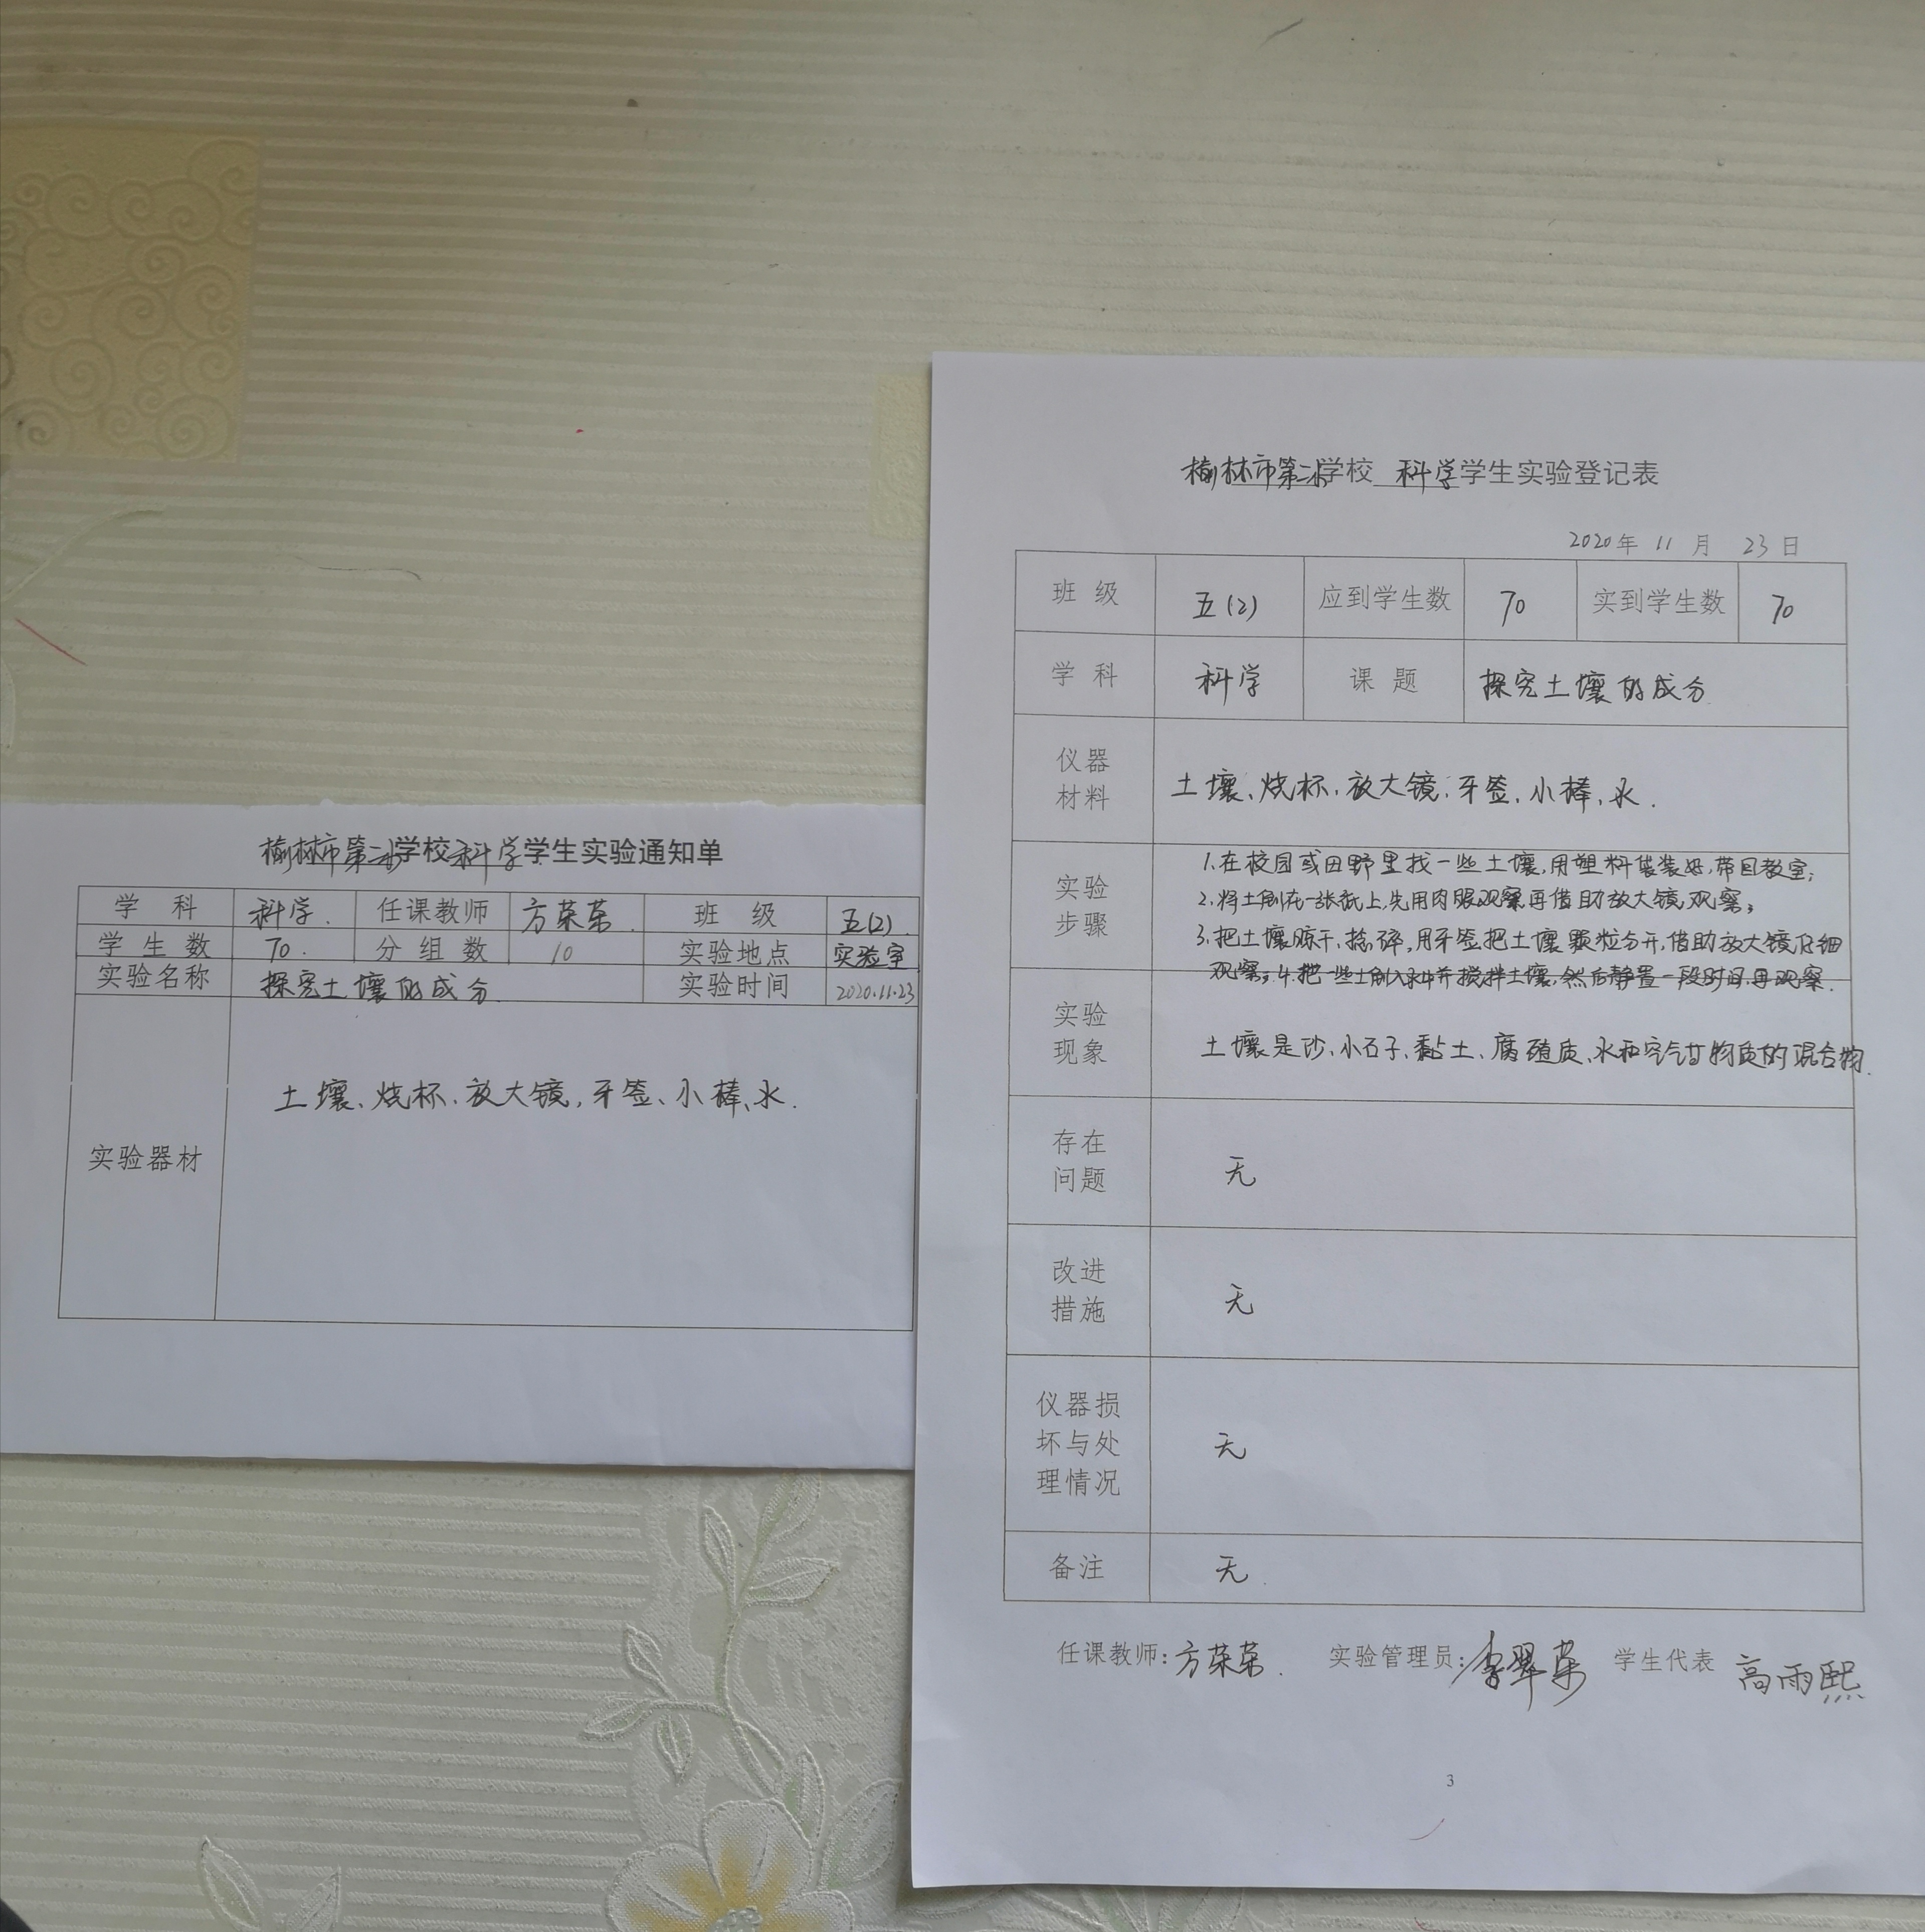 榆林市第二小学校科学学生实验通知单
学 科 科学. 任课教师 方荣荣. 班 级 五(2).
学 生 数 70. 分 组 数 10 实验地点 实验室
实验名称 探究土壤的成分. 实验时间 2020.11.23
实验器材 土壤、烧杯、放大镜,牙签、小棒、水.
榆林市第二小学校 科学学生实验登记表
2020年 11 月 23 日
班 级 五(2) 应到学生数 70 实到学生数 70
学 科 科学 课 题 探究土壤的成分.
仪器
材料
土壤、烧杯、放大镜、牙签、小棒、水.
实验
步骤
1.在校园或田野里找一些土壤,用塑料袋装好,带回教室;
2.将土倒在一张纸上,先用肉眼观察再借助放大镜观察;
3.把土壤晾干,捻碎,用牙签把土壤颗粒分开,借助放大镜仔细
观察;4.把一些土倒入水中并搅拌土壤,然后静置一段时间再观察.
实验
现象
土壤是沙、小石子、黏土、腐殖质、水和空气等物质的混合物.
存在
问题
无
改进
措施
无
仪器损
坏与处
理情况
无
备注 无.
任课教师:方荣荣. 实验管理员:李翠荣 学生代表 高雨熙
3